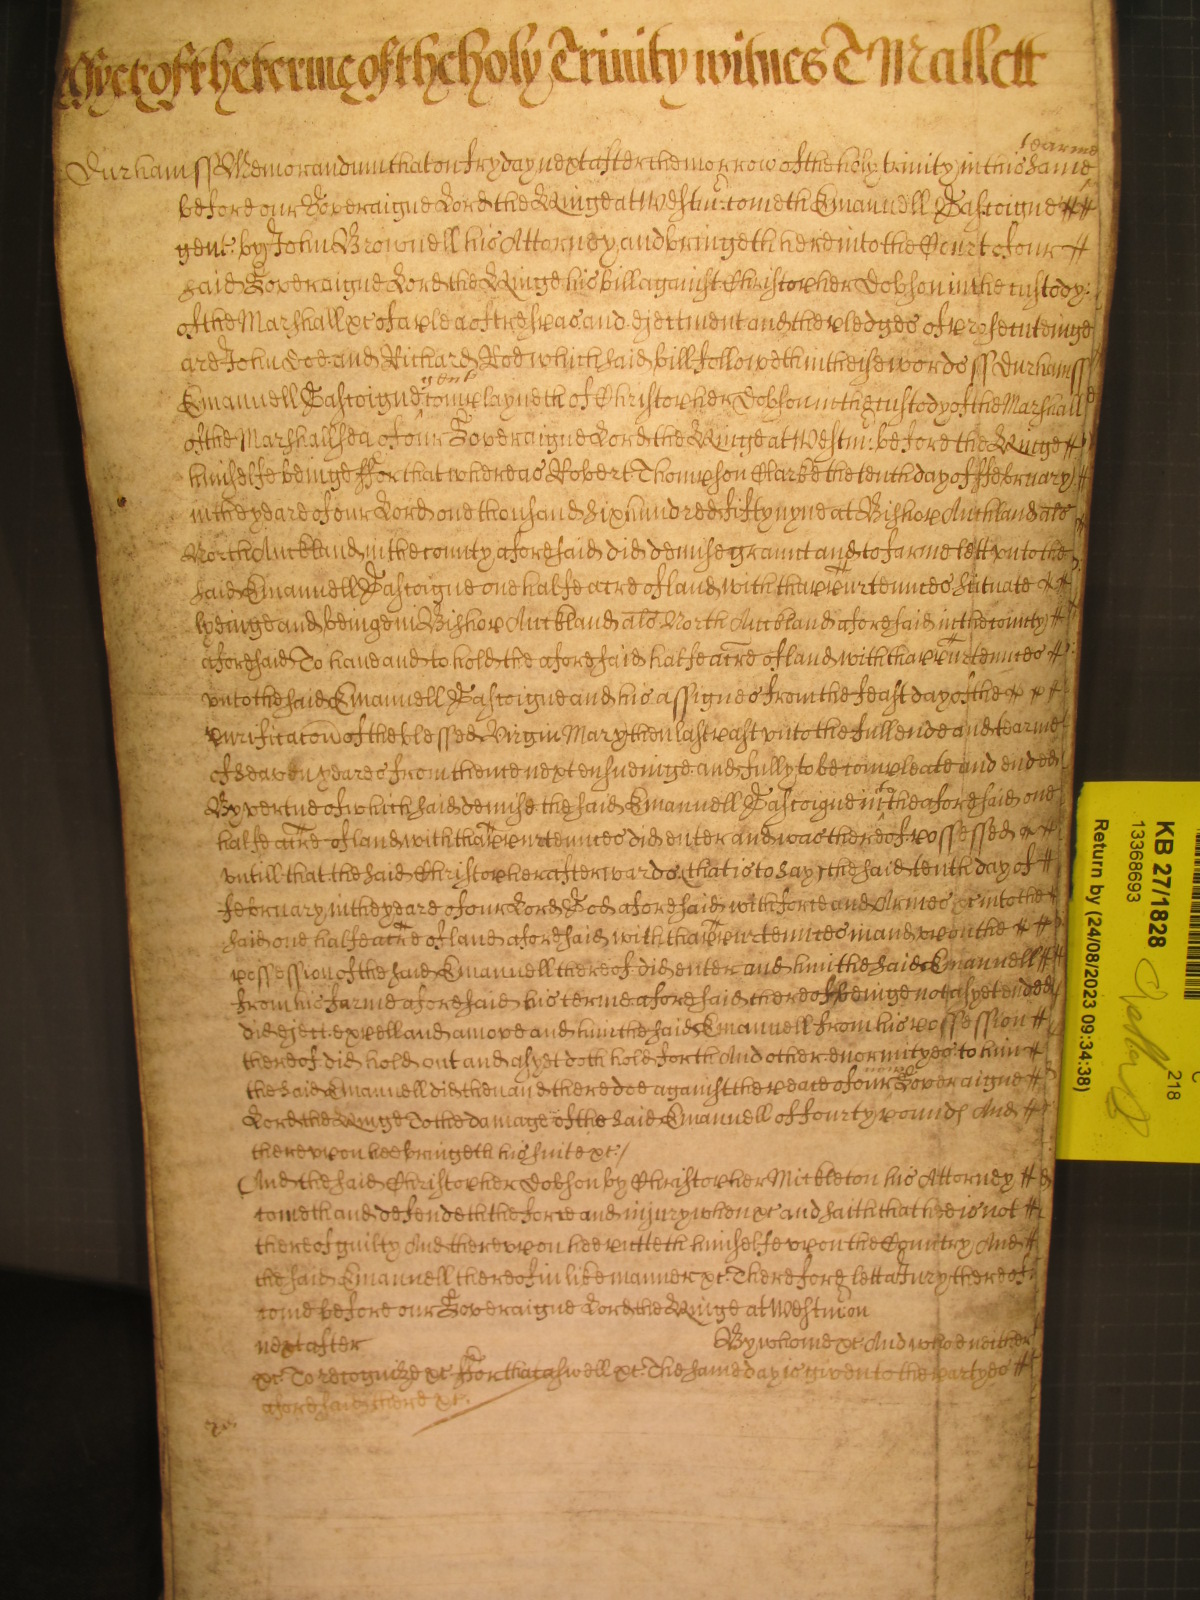 Yet of the terme of the holy Trinity witnes T Mallett
tearme
Durham ss Memorandum that on fryday next after the morrow of the holy trinity in this same
before our Soveraigne Lord the Kinge at Westm: cometh Emanuell Gascoigne
gent: by John Brownell his Attorney and bringeth here into the Court of our
said Soveraigne Lord the Kinge his bill against Christopher Dobson in the custody
of the Marshall &c of a plea of trespas and ejectment and the pledges of prosecuteinge
are John Doe and Richard Roe which said bill followeth in these words ss Durham ss
gent
Emanuell Gascoigne complayneth of Christopher Dobson in the custody of the Marshall
of the Marshallsea of our Soveraigne Lord the Kinge at Westm: before the Kinge
himselfe beinge ffor that whereas Robert Thompson Clarke the tenth day of ffebruary
in the yeare of our Lord one thousand six hundred fifty nyne at Bishop Auckland als
North Auckland in the county aforesaid did demise graunt and to farme lett unto the
said Emanuell Gascoigne one halfe acre of land with thappurtennces scituate
lyeinge and beinge in Bishop Auckland als North Auckland aforesaid in the county
aforesaid To have and to hold the aforesaid halfe acre of land with thappurtennces
unto the said Emanuell Gascoigne and his assignes from the feast day of the
Purificacon of the blessed Virgin Mary then last past unto the full ende and tearme
of seaven yeares from thence next ensueinge and fully to be compleate and ended
By vertue of which said demise the said Emanuell Gascoigne into the aforesaid one
halfe acre of land with thappurtennces did enter and was thereof possessed
untill that the said Christopher afterwards (that is to say) the said tenth day of
february in the yeare of our Lord God aforesaid with force and Armes &c into the
said one halfe acre of land aforesaid with thappurtennces in and upon the
possession of the said Emanuell thereof did enter and him the said Emanuell
from his farme aforesaid his terme aforesaid thereof beinge not as yet ended
did eject expell and amove and him the said Emanuell from his possession
thereof did hold out and as yet doth hold forth And other enormityes to him
the said Emanuell did then and there doe against the peace of our Soveraigne
Lord the Kinge To the damage of the said Emanuell of fourty pounds And
thereupon hee bringeth his suite &c:/
And the said Christopher Dobson by Christopher Mickleton his Attorney
cometh and defendeth the force and injury when &c and saith that hee is not
thereof guilty And thereupon hee putteth himselfe upon the Country And
the said Emanuell thereof in like manner &c: Therefore lett a Jury thereof
come before our Soveraigne Lord the Kinge at Westm on
next after By whome &c And who neither
&c To recognize &c ffor that aswell &c The same day is given to the partyes
aforesaid there &c:
KB 27/1828
13368693
218
Return by (24/08/2023 09:34:38)